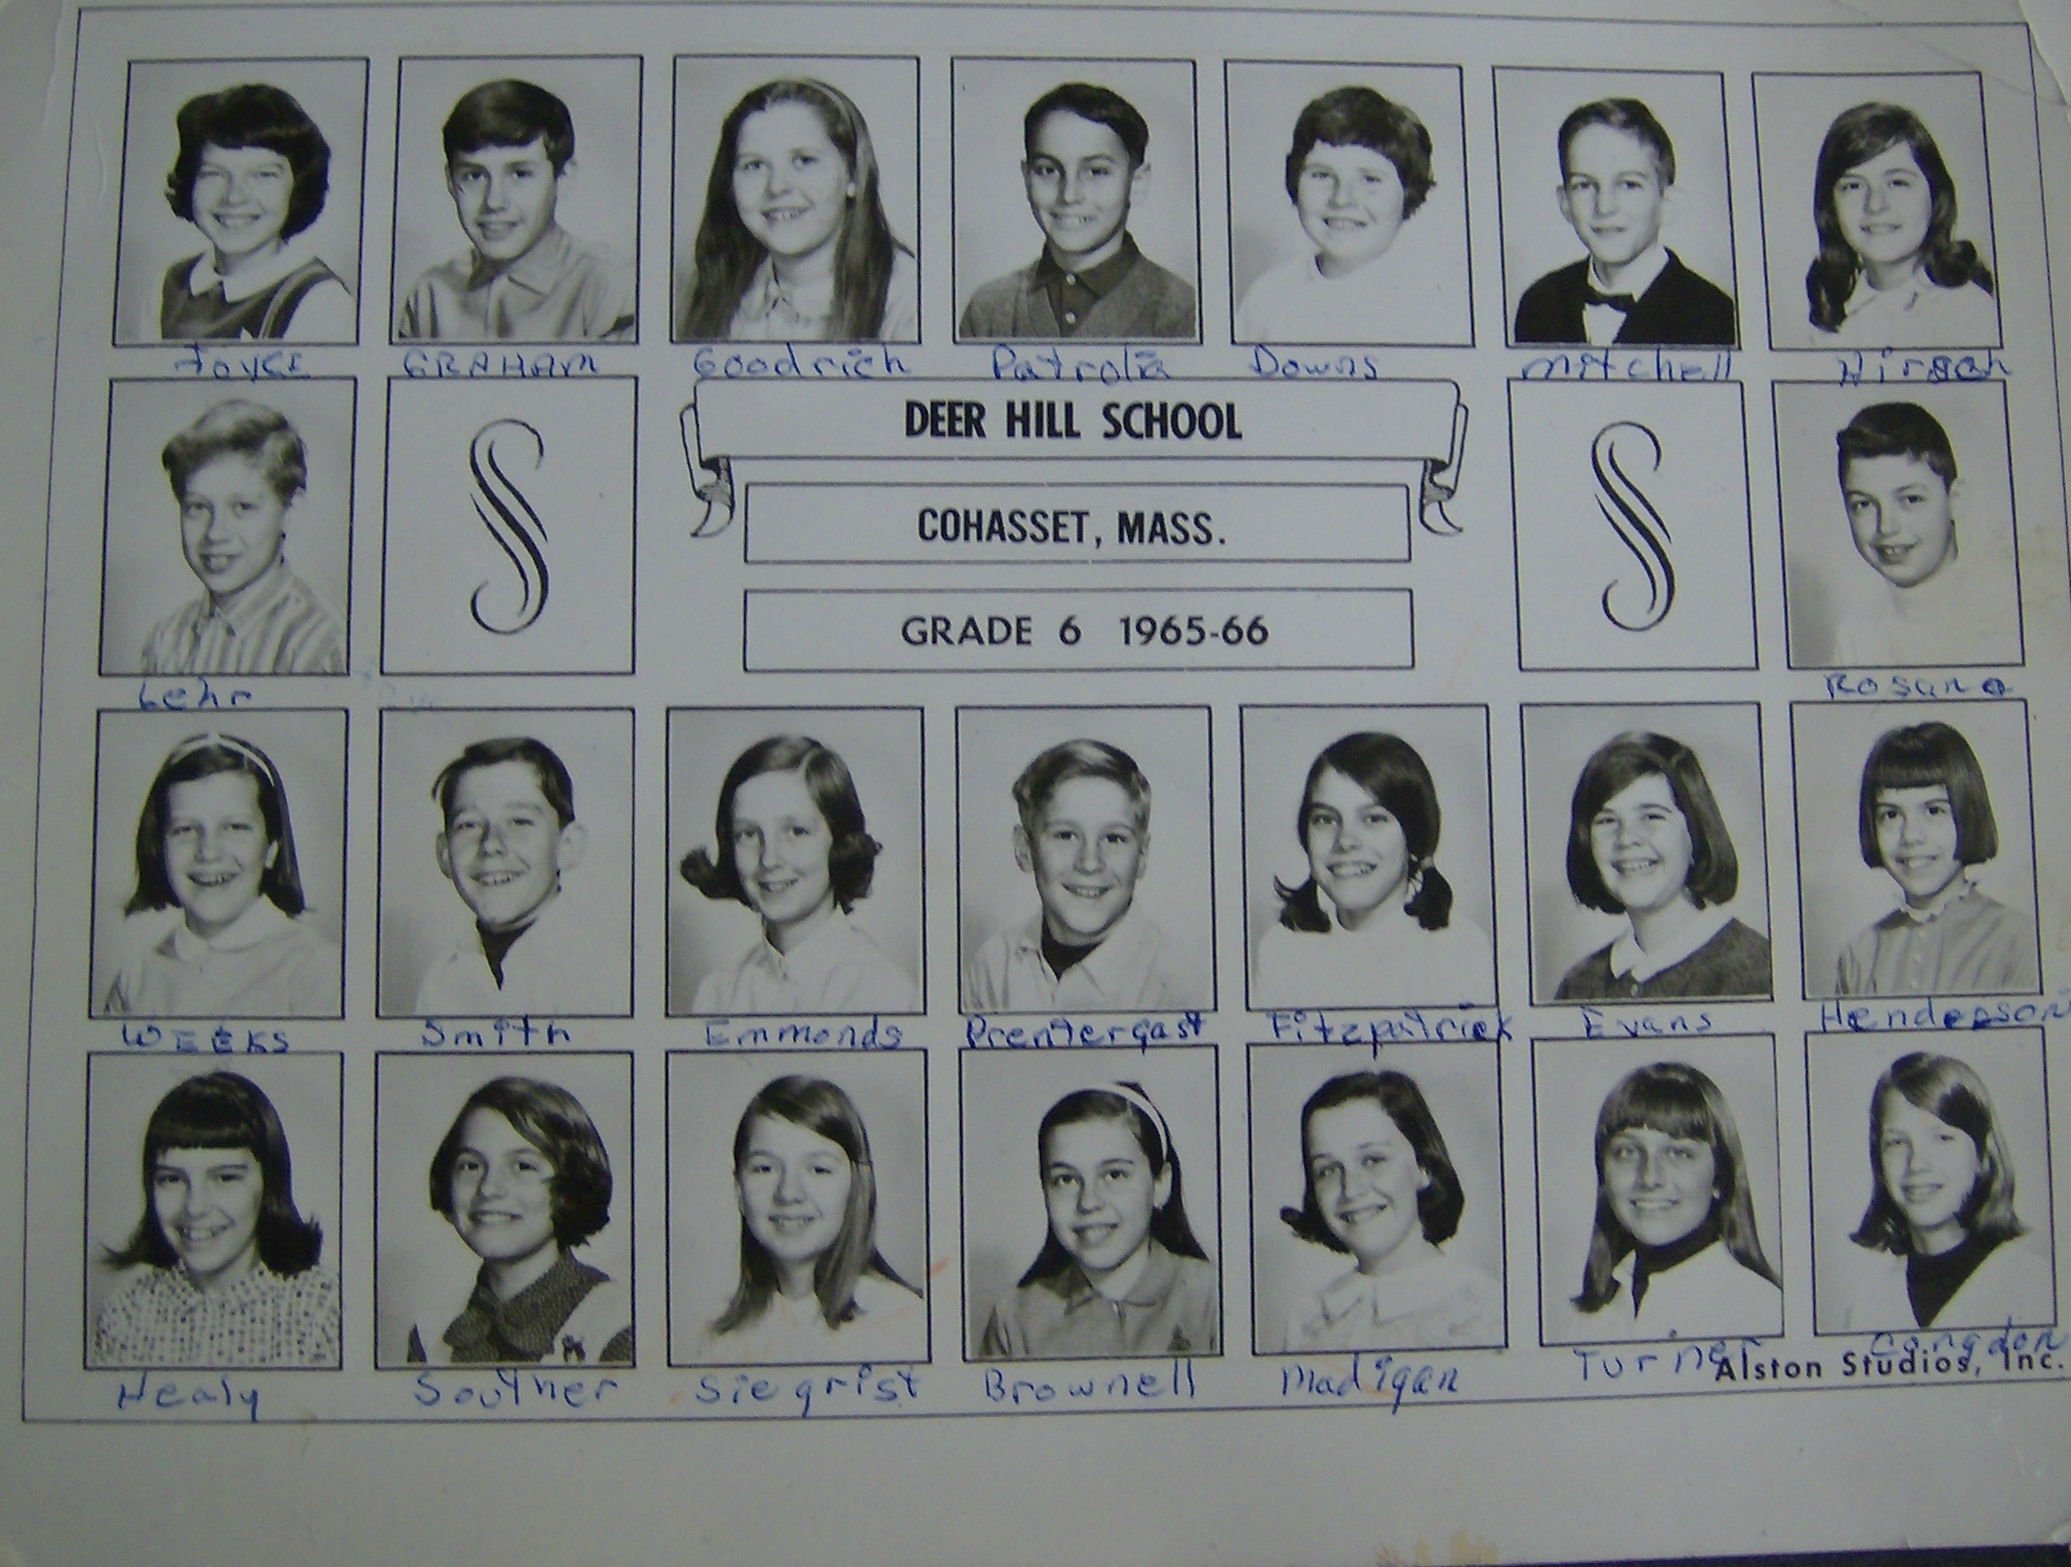 JOYCE GRAHAM Goodrich Patrolia Downs Mitchell Hirsch
DEER HILL SCHOOL
COHASSET, MASS.
GRADE 6 1965-66
Lehr Rosano
WEEKS Smith Emmonds Prentergast Fitzpatrick Evans Henderson
Healy Souther Siegrist Brownell Madigan Turner Congdon
Alston Studios, Inc.